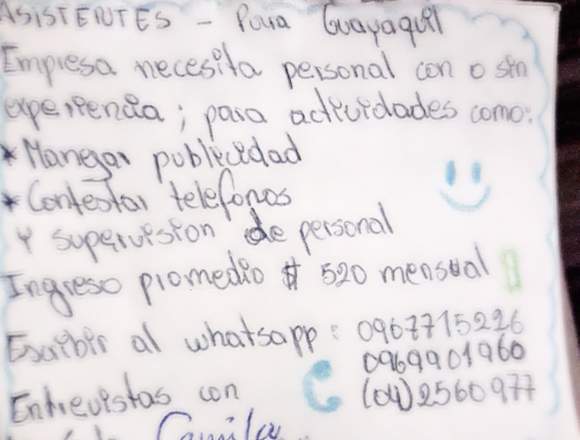 ASISTENTES - Para Guayaquil
Empresa necesita personal con o sin
experiencia; para actividades como:
* Manegar publicidad
* Contestar telefonos
Y supervision de personal
Ingreso promedio $ 520 mensual
Escribir al whatsapp: 0967715226
0969901960
(04)2560977
Entrevistas con
Camila